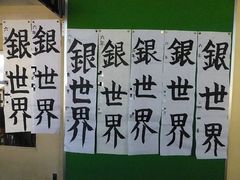 銀世界
銀世界
銀世界
銀世界
銀世界
銀世界
銀世界